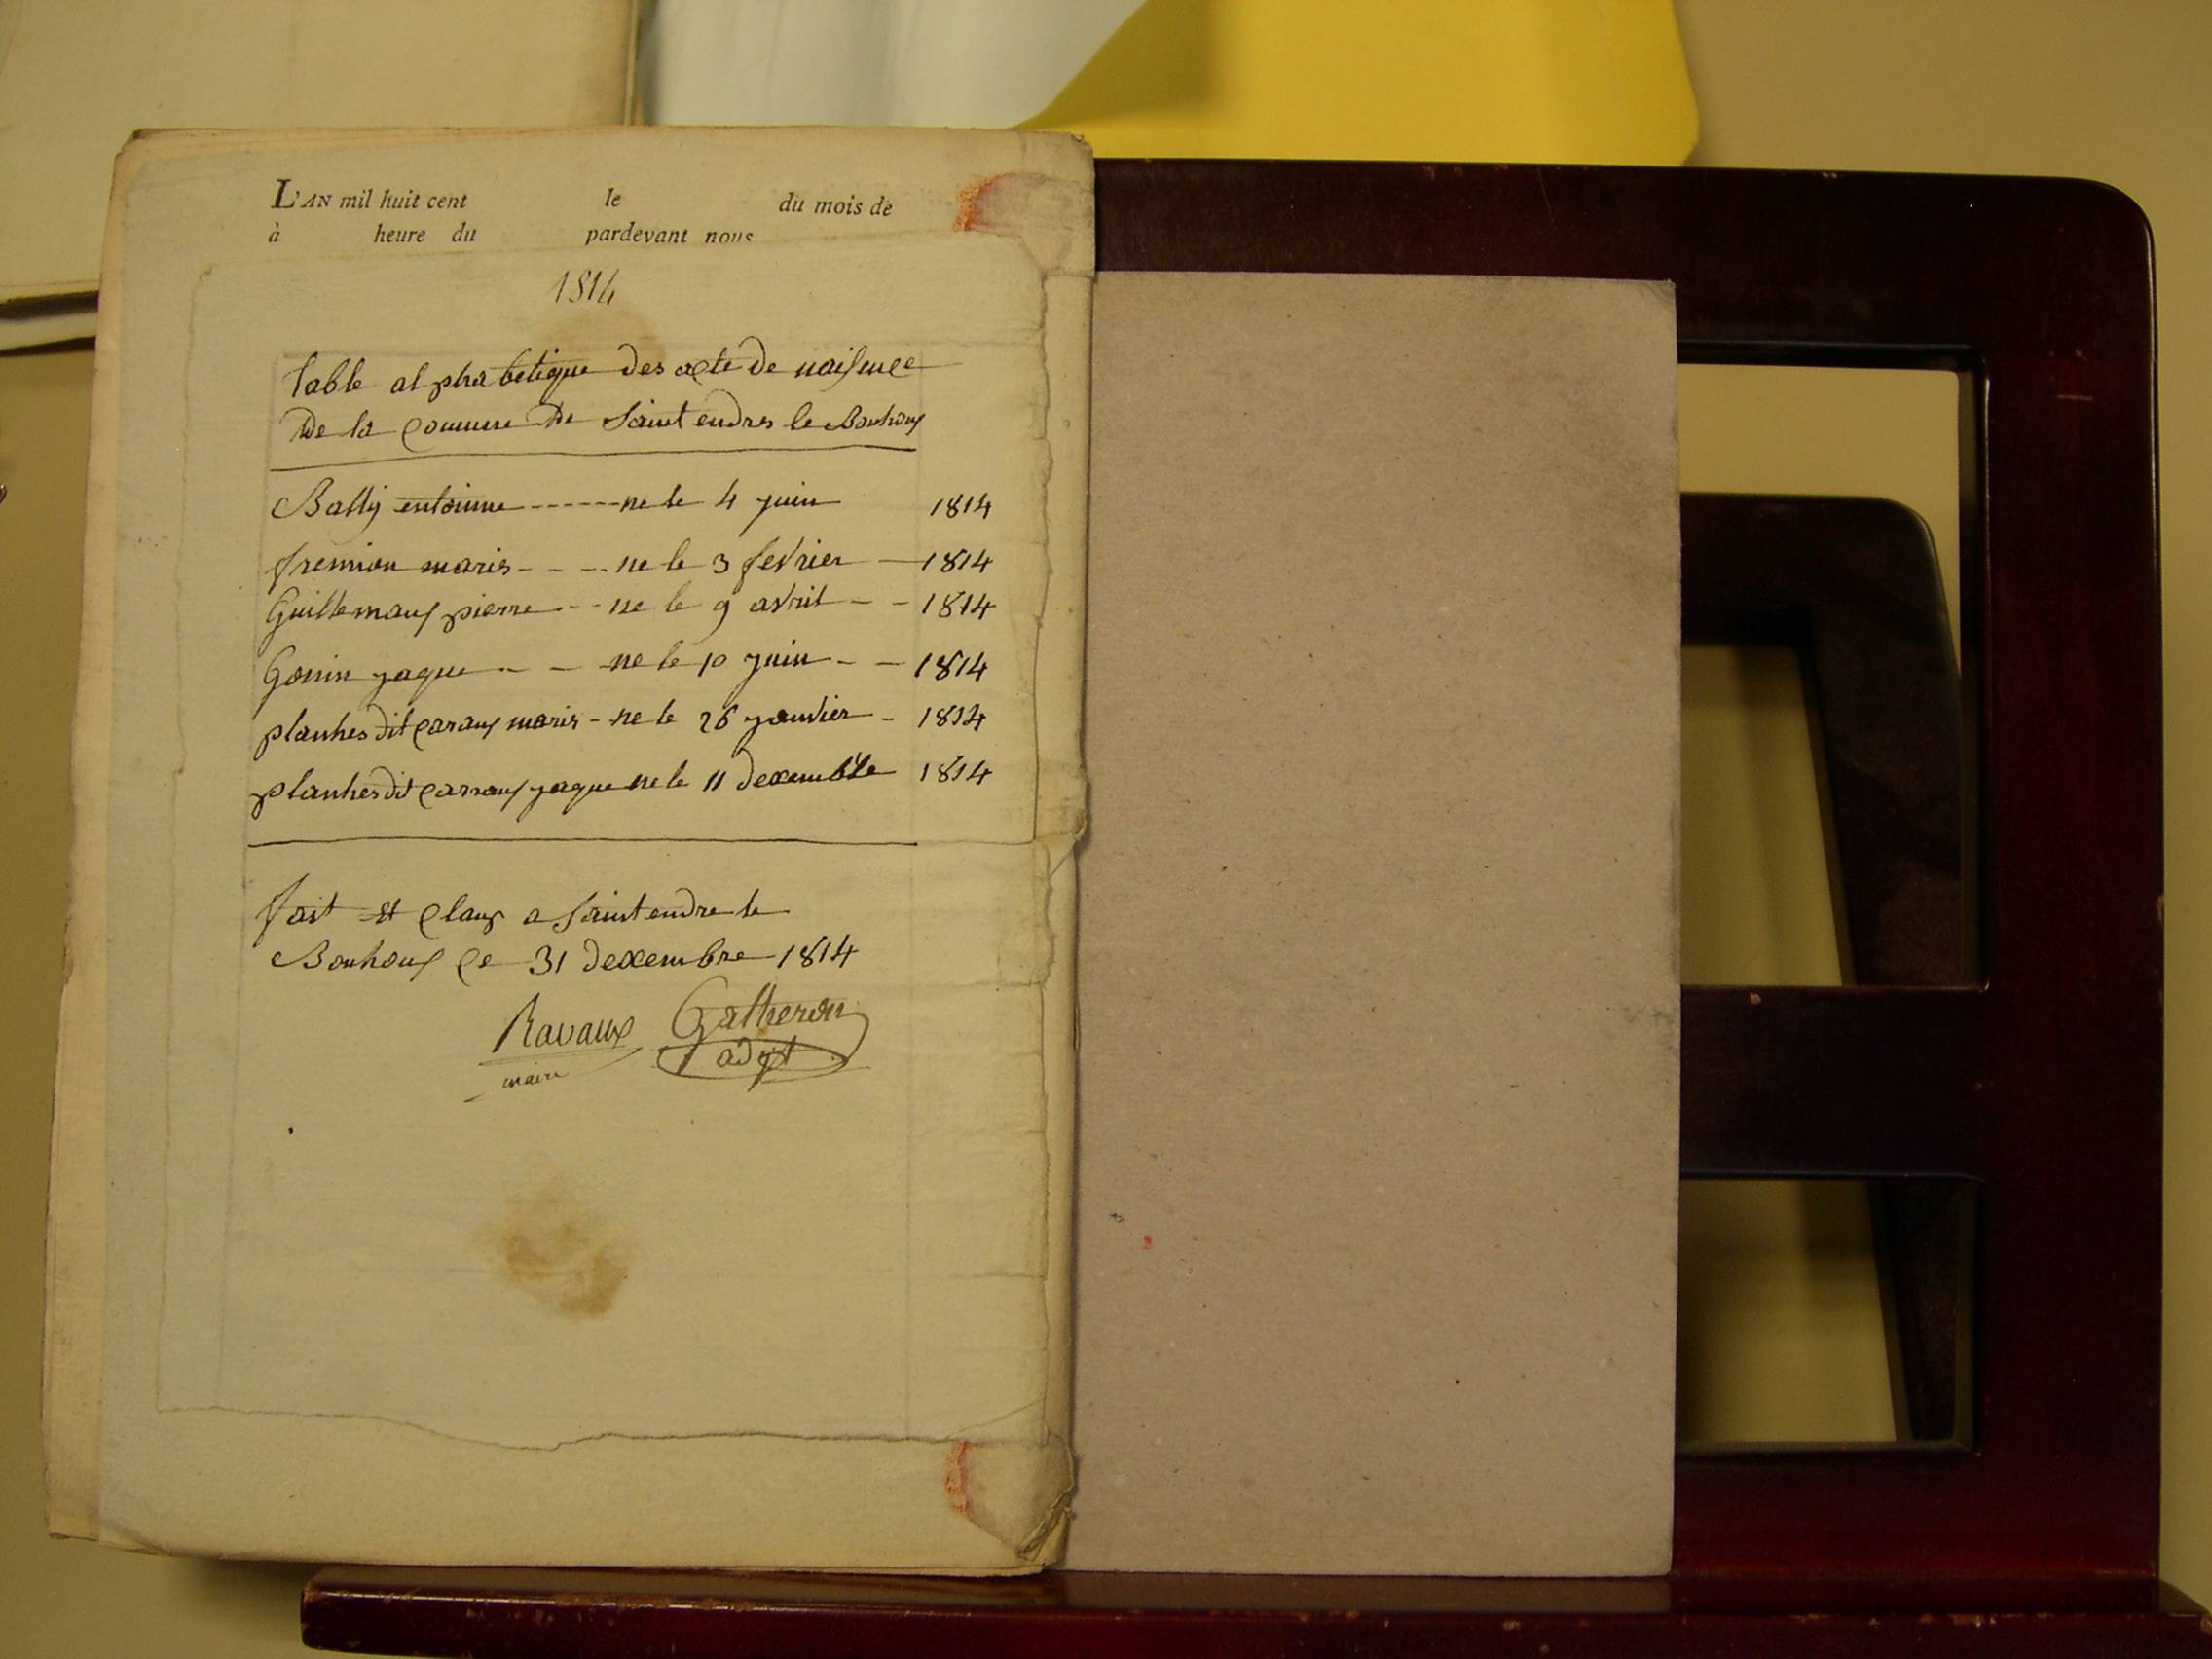 L'AN mil huit cent le du mois de
à heure du pardevant nous
1814
Table alphabetique des acte de naisence
De la commune de Saint endres le Bouhoux
Bally entoinne ------ ne le 4 juin 1814
fremion maris - - -- ne le 3 fevrier — 1814
Guillemaux pierre -- ne le 9 avril - - 1814
Gonin jaque - - ne le 10 juin - - 1814
planhes dit caraux maris - ne le 26 janvier - 1814
planhes dit carraux jaque ne le 11 decembre 1814
fait et claux a Saint endre le
Bouhoux ce 31 decembre 1814
Ravaux Gatheron
maire adjt